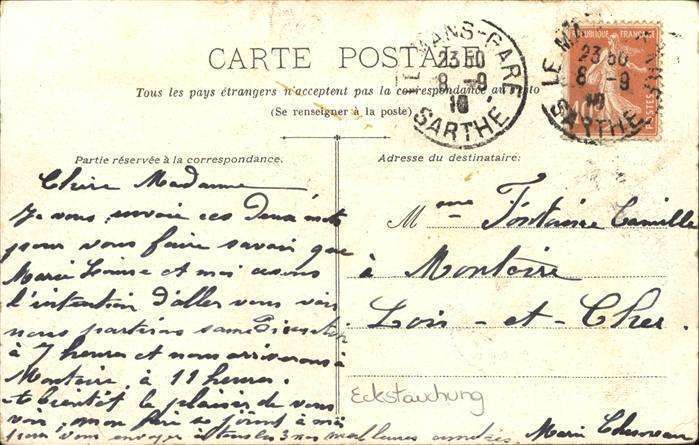 CARTE POSTALE
Tous les pays étrangers n'acceptent pas la correspondance au recto
(Se renseigner à la poste)
LE MANS-GARE
23 50
8 -9
10
SARTHE
LE M
23 50
8 -9
10
SARTHE
RÉPUBLIQUE FRANÇAISE
POSTES
10
Partie réservée à la correspondance.
Chère Madame
Je vous envoie ces deux mots
pour vous faire savoir que
Marie Louise et moi avons
l'intention d'aller vous voir
nous partirons
à 7 heures et nous arriverons à
Montoire à 11 heures.
A bientôt le plaisir de vous
voir, mon se joint à moi
pour vous envoyer à tous les 3 nos meilleures amitiés Marie
Adresse du destinataire.
Mme Fontaine Camille
à Montoire
Loir-et-Cher
Eckstauchung